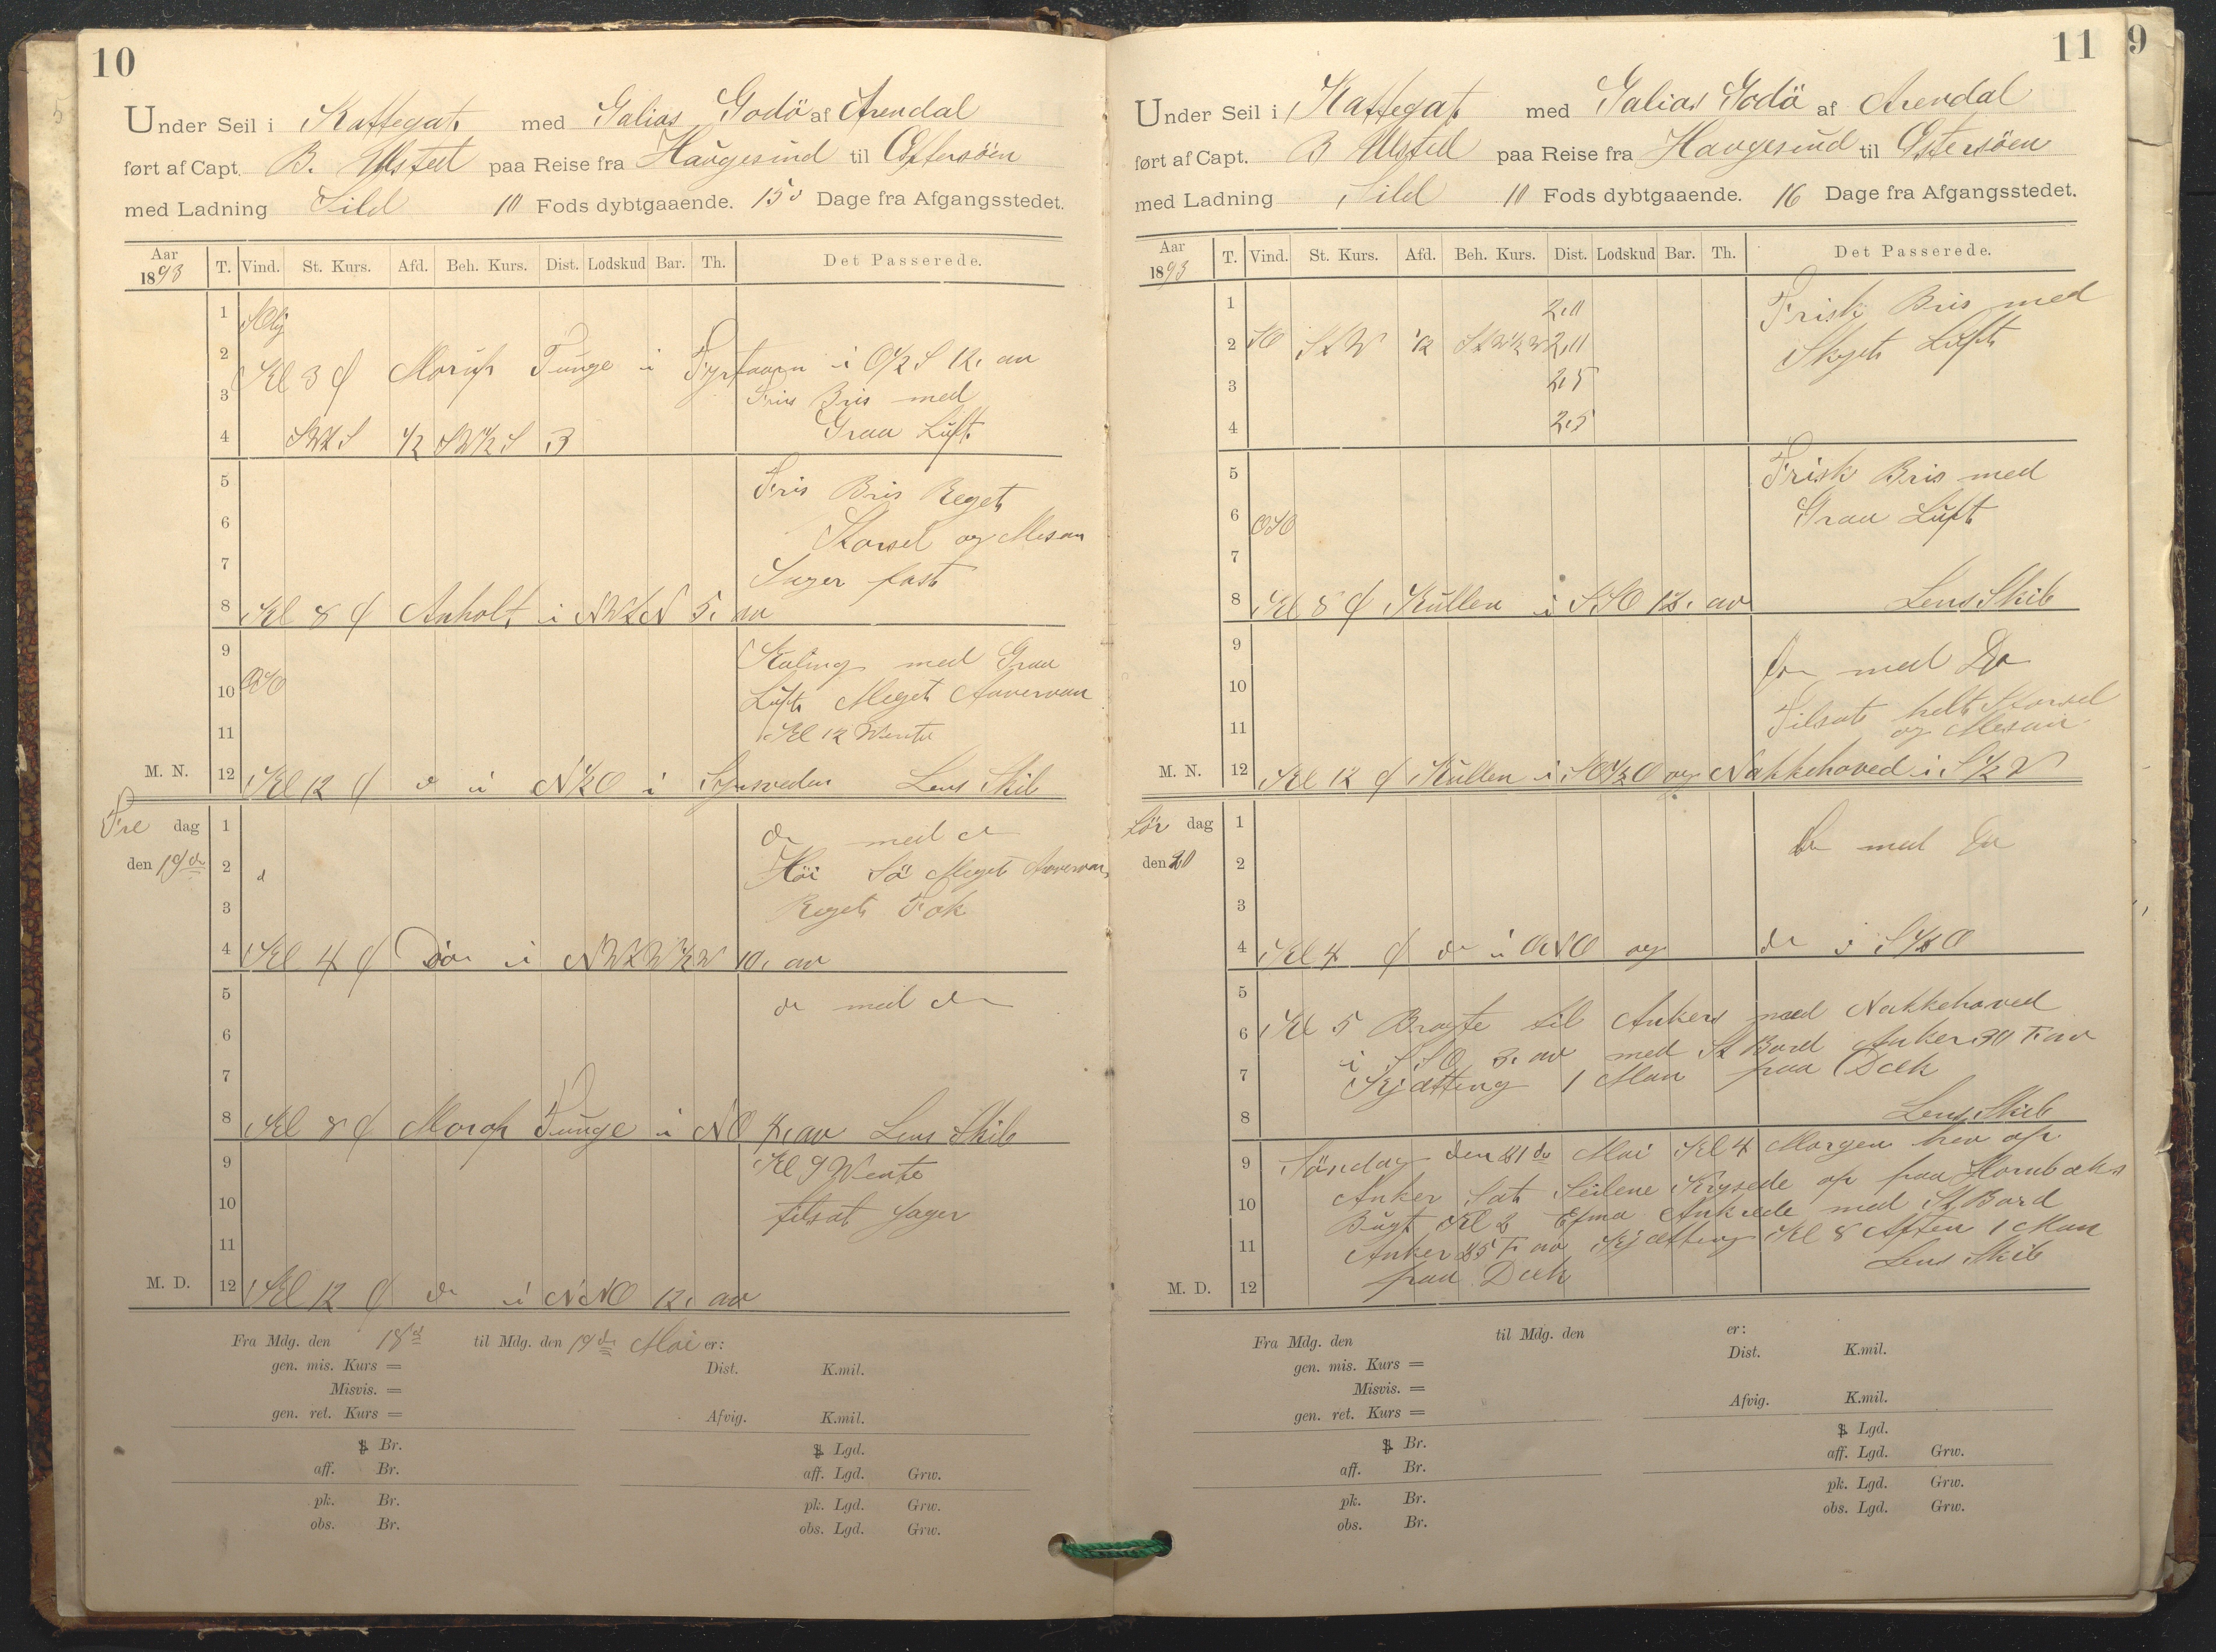 10
Under Seil i Kattegat med Galias Godö af Arendal
ført af Capt. B. Ulsted paa Reise fra Haugesund til Østersöen
med Ladning Sild 10 Fods dybtgaaende. 15 Dage fra Afgangsstedet.
Aar 1893 T. Vind. St. Kurs. Afd. Beh. Kurs. Dist. Lodskud Bar. Th. Det Passerede.
1
2
Kl 3 Morup Tunge i i O½S 12, av
3 Fris Bris med
4 SWtS ½ SW½S 3 Graa Luft
5 Fris Bris Reget
6 Storsel og Mesan
7 Jager fast
8 Kl 8 Anholt i NWtN 5, av
9 Kuling med Graa
10 OSO Luft Meget
11 Kl 12
M. N. 12 Kl 12 i Lens Skib
Fre dag 1 do med do
den 19de 2 Höi Sö Meget
3 Reget Fok
4 Kl 4 Do i 10, av
5 do med do
6
7
8 Kl 8 Morup Tunge i NO av Lens Skib
9 Kl 9 Wente
10 tilsat Jager
11
M. D. 12 Kl 12 do i NNO 12, av
Fra Mdg. den 18d til Mdg. den 19de Mai er:
gen. mis. Kurs = Dist. K.mil.
Misvis. =
gen. ret. Kurs = Afvig. K.mil.
Br. Lgd.
aff. Br. aff. Lgd. Grw.
pk. Br. pk. Lgd. Grw.
obs. Br. obs. Lgd. Grw.
11
9
Under Seil i Kattegat med Galias Godö af Arendal
ført af Capt. B Ulsted paa Reise fra Haugesund til Østersöen
med Ladning Sild 10 Fods dybtgaaende. 16 Dage fra Afgangsstedet.
Aar 1893 T. Vind. St. Kurs. Afd. Beh. Kurs. Dist. Lodskud Bar. Th. Det Passerede.
1 2,0 Frisk Bris med
2 SO StW ½ StW½W 2,0 Skyet Luft
3 2,5
4 2,5
5 Frisk Bris med
6 OSO Graa Luft
7
8 Kl 8 Kullen i SSO av Lens Skib
9 do med Do
10 Tilsat helt Storsel
11 og Mesan
M. N. 12 Kl 12 Kullen i SO½O og Nakkehoved i S½W
Lör dag 1 Do med Do
den 20 2
3
4 Kl 4 do i ONO og do i
5
6 Kl 5 Bragte til Ankers med Nakkehoved
7 i SSO 3, av med St Bord Anker 30 F av
Kjætting 1 Man paa Dæk
8 Lens Skib
9 Söndag den 21de Mai Kl 4 Morgen hev op
10 Anker Sat Seilene Krysede op paa Hornbæks
Bugt Kl 2 Efma Ankrede med St Bord
11 Anker 25 F av Kjætting Kl 8 Aften 1 Man
M. D. 12 paa Dæk Lens Skib
Fra Mdg. den til Mdg. den er:
gen. mis. Kurs = Dist. K.mil.
Misvis. =
gen. ret. Kurs = Afvig. K.mil.
Br. Lgd.
aff. Br. aff. Lgd. Grw.
pk. Br. pk. Lgd. Grw.
obs. Br. obs. Lgd. Grw.